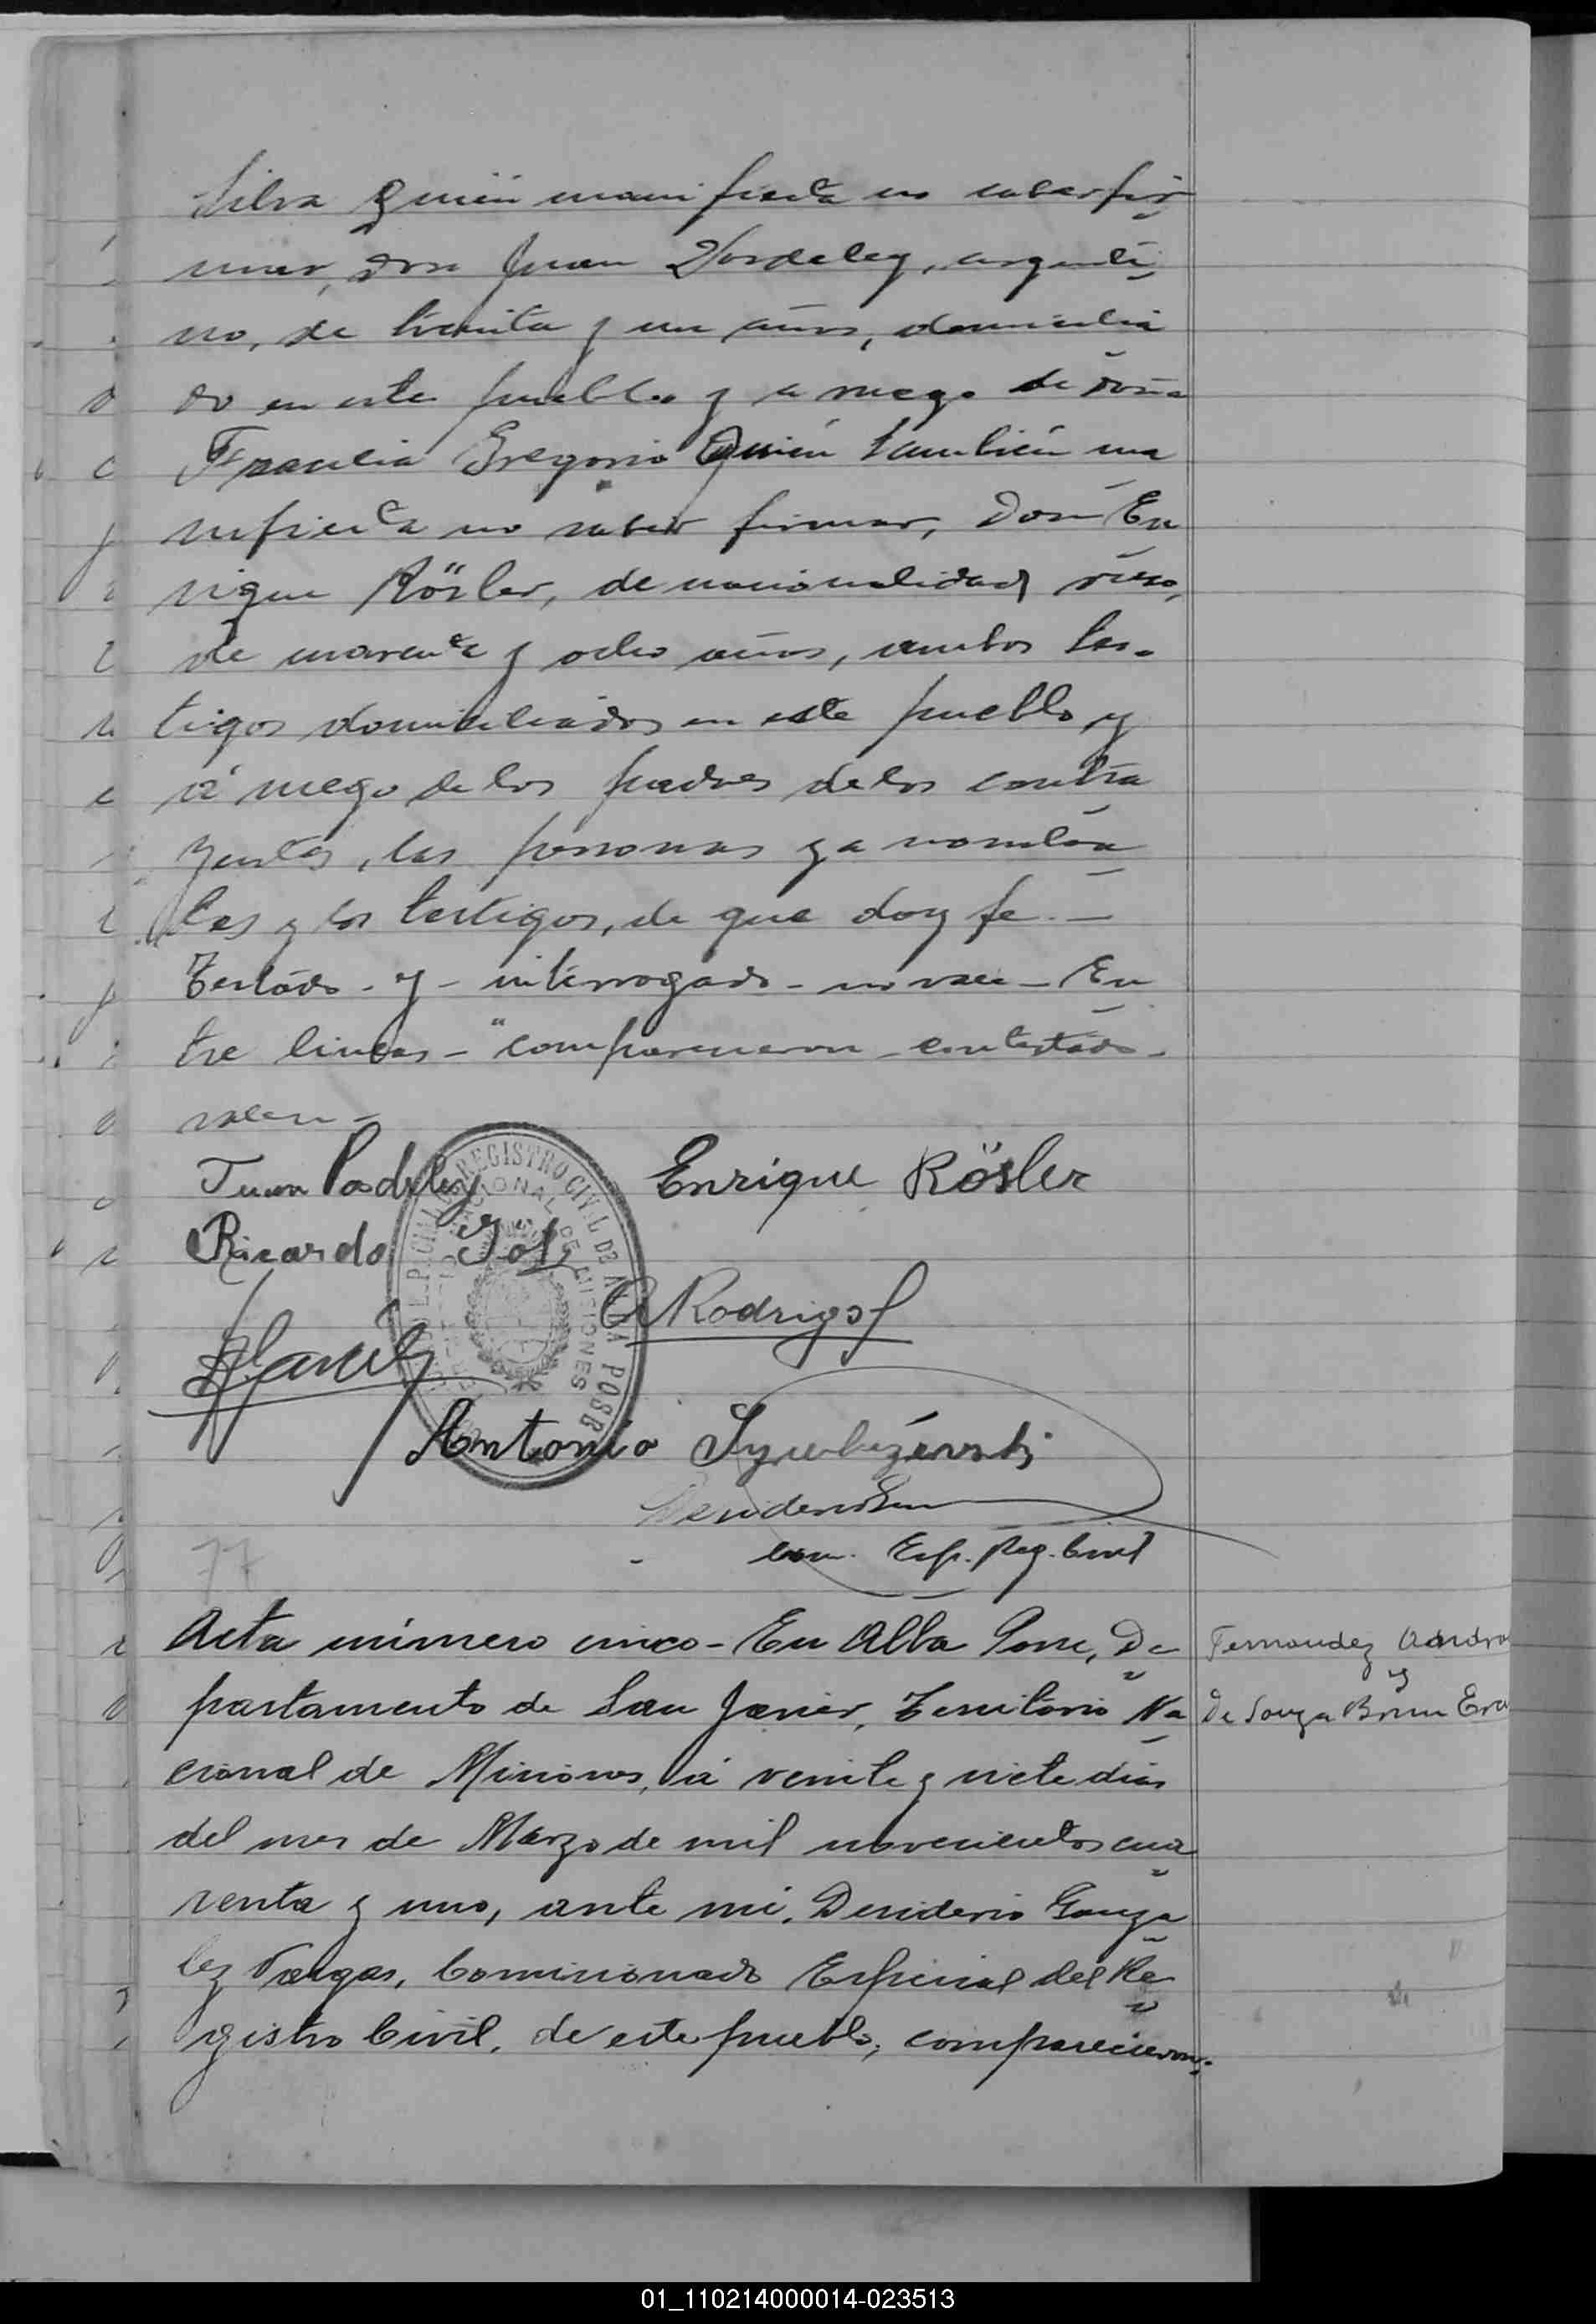 Silva quien manifiesta no saber fir
mar, don Juan Vordeley, argenti
no, de treinta y un años, domicilia
do en este pueblo y a ruego de doña
Francia Gregorio quién también ma
nifiesta no saber firmar, Don En
rique Rösler, de nacionalidad ruso,
de cuarenta y ocho años, ambos tes-
tigos domiciliados en este pueblo y
á ruego de los padres de los contra
yentes, las personas ya nombra
das y los testigos, de que doy fe.—
Testado - y - interrogado - no vale - En
tre lineas - "comparecieron - contestado -
valen -
Juan
Enrique Rösler
Ricardo
REGISTRO CIVIL DE ALBA POSSE
NACIONAL DE MISIONES
Rodrigo
Antonio
Com. Esp. Reg. Civil
77
Acta número cinco - En Alba Posse, De
partamento de San Javier, Territorio Na
cional de Misiones, á veinte y siete dias
del mes de Marzo de mil novecientos cua
renta y uno, ante mi, Desiderio Gonza
lez Vargas, Comisionado Especial del Re
gistro Civil, de este pueblo, comparecieron:
Fernandez
y
De Souza
01_110214000014-023513